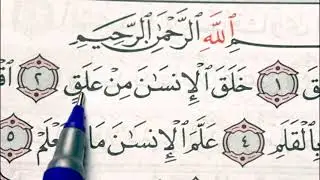 ـمِ ٱللَّهِ ٱلرَّحْمَٰنِ ٱلرَّحِيمِ
ـقَ ١ خَلَقَ ٱلْإِنسَٰنَ مِنْ عَلَقٍ ٢
بِٱلْقَلَمِ ٤ عَلَّمَ ٱلْإِنسَٰنَ مَا يَعْلَمْ ٥